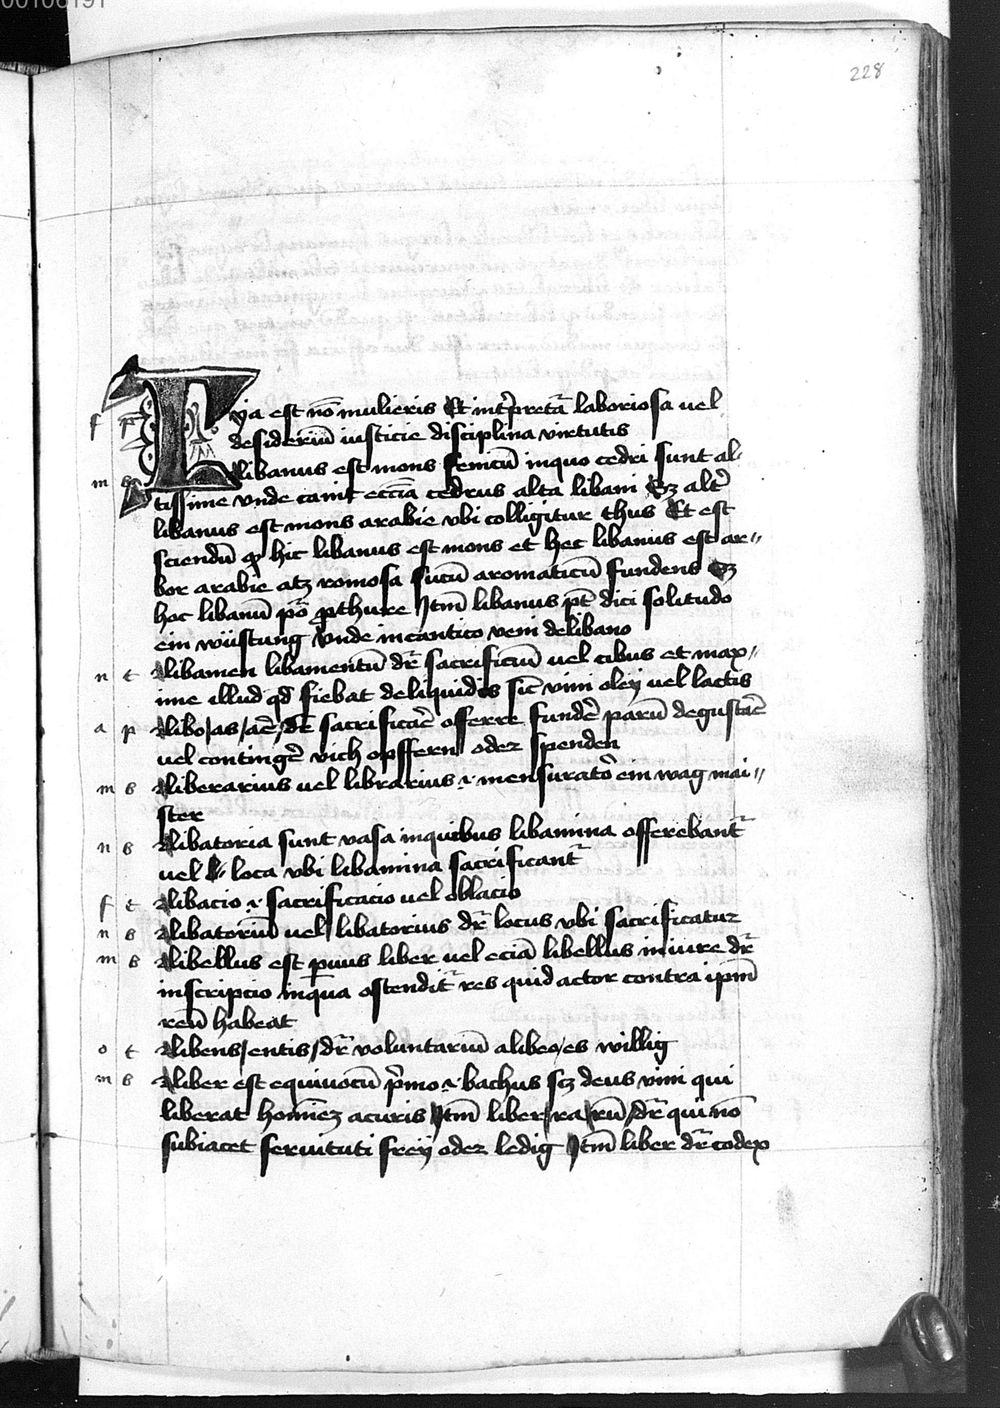 00106191
228
f p Lya est nō mulieris Et int̄pretā laboriosa uel
desideriū iusticie disciplina virtutis
m s libanus est mons fenicū inquo cedri sunt al-
tissime vnde canit eccīa cedrus alta libani Eꝫ alt̄
libanus est mons arabie vbi colligitur thus Et est
sciendū ꝙ hic libanus est mons et hec libanus est ar-
bor arabie atꝫ romosa sucū aromaticū fundens Eꝫ
hoc libanū pō ꝓ thure Itm̄ libanus pt̄ dici solitudo
ein wüstung Vnde in cantico veni de libano
n t libamen libamentū dr̄ sacrificiū uel cibus et max-
ime illud qd̄ fiebat deliquidis sic̄ vini oley uel lactis
a p libo/as/ar̄e/dr̄ sacrificar̄e offerre funder̄e parū degustar̄e
uel continger̄e vich opffern oder spenden
m s liberarius uel librarius .i. mensurator̄ ein wag mai-
ster
n s libatoria sunt vasa inquibus libamina offerebant̄
uel loca vbi libamina sacrificant̄
f t libacio .i. sacrificacio uel oblacio
n s libatoriū uel libatorius dr̄ locus vbi sacrificatur
m s libellus est ꝑuus liber uel eciā libellus in iure dr̄
inscripcio inqua ostendit̄ res quid actor contra ipm̄
reū habeat
o t libens/entis/dr̄ voluntariū a libeo/es willig
m s liber est equiuocū p̄mo .i. bachus scꝫ deus vini qui
liberat homīeꝫ acuris Itm̄ liber/ra/rū/dr̄ qui nō
subiacet seruituti frey oder ledig Itm̄ liber dr̄ codex